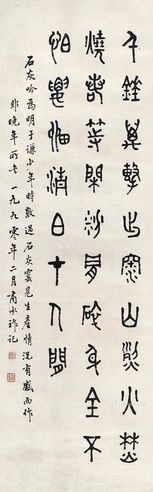 千錘萬擊出深山烈火焚
燒若等閒粉骨碎身全不
怕要留清白在人間
石灰吟為明于謙少年時數過石灰窰見生產情況有感而作
非晚年所 一九九零年二月商承祚記